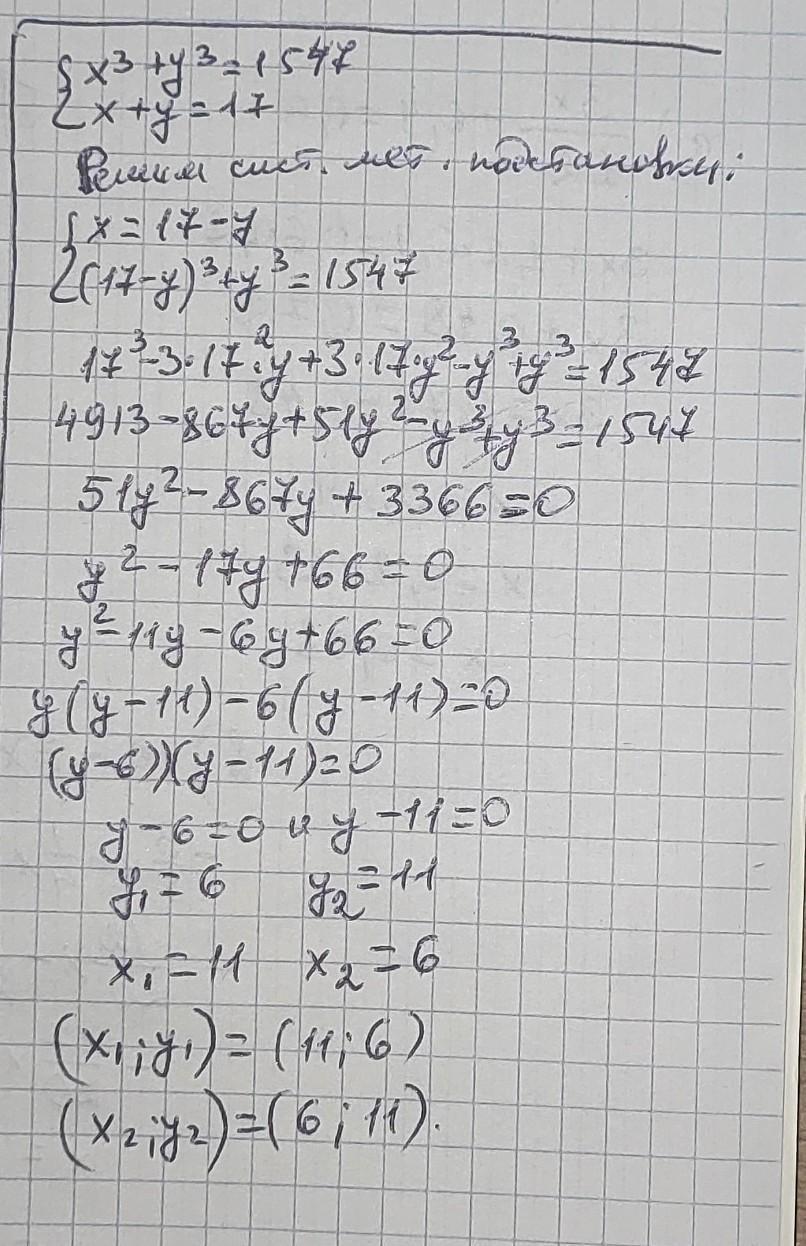 {x³+y³=1547
{x+y=17
Решим сист. мет. подстановки:
{x=17-y
{(17-y)³+y³=1547
17³-3·17²·y+3·17·y²-y³+y³=1547
4913-867y+51y²-y³+y³=1547
51y²-867y+3366=0
y²-17y+66=0
y²-11y-6y+66=0
y(y-11)-6(y-11)=0
(y-6))(y-11)=0
y-6=0 и y-11=0
y₁=6 y₂=11
x₁=11 x₂=6
(x₁;y₁)=(11;6)
(x₂;y₂)=(6;11).